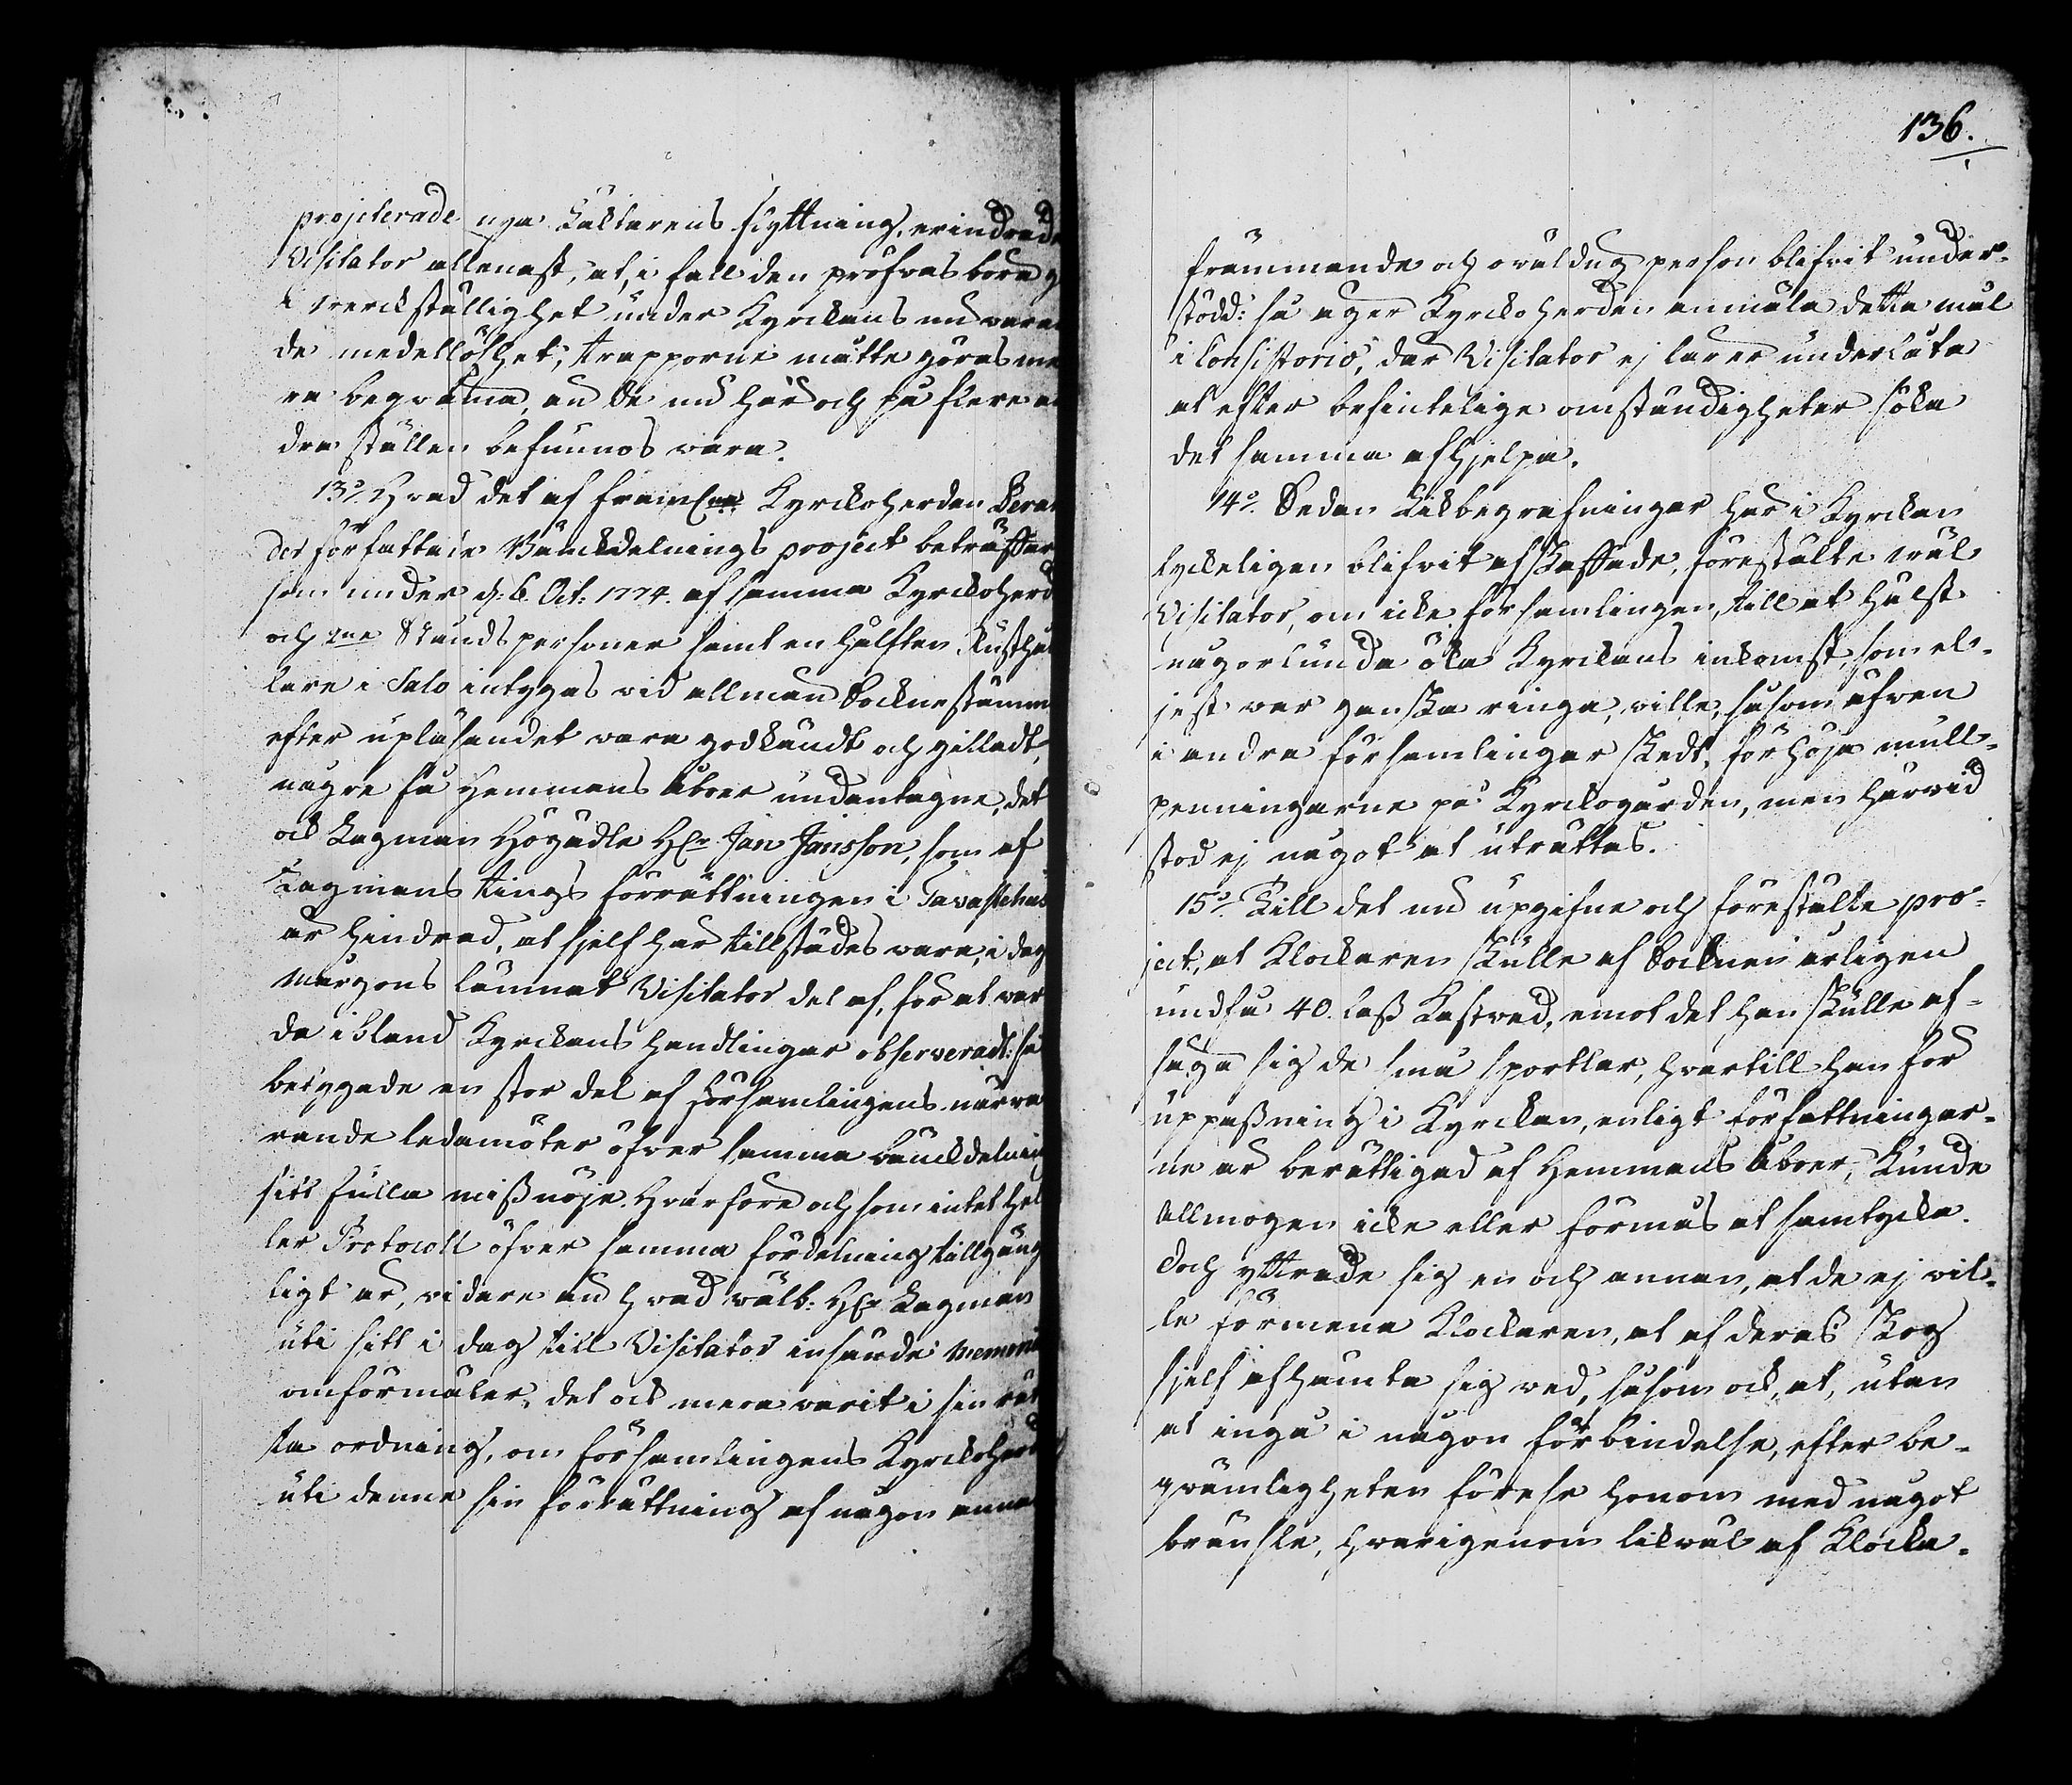 projeterade nya Lächtarens flyttning, erindrade
Visitator allenast, at, i fall den pröfvas böra g
i werckställighet under Kyrckans nu waran
de medellöshet, trapporne måtte göras me
ra beqväma, än de nu här och på flere an
dra ställen befunnos wara.
13:o Hvad det af fram. Kyrckoherden Beran
der författade Bänckdelnings project beträffar
som under d. 6. Oct: 1774. af samma Kyrckoherd
och 2ne Ståndspersoner samt en hälften Rusthål
lare i Salo intygas vid allmän Sockne stämma
efter upläsandet vara godkändt och gilladt,
några få Hemmans Åboer undantagne, det
ock Lagman Högädle H:r Jan Jansson, som af
Lagmans tings förrättningen i Tavastehus
är hindrad, at sjelf här tillstädes wara, i dag
morgons lämnat Visitator del af, för at war
da ibland Kyrckans handlingar observeradt: så
betygade en stor del af församlingens närva
rande ledamöter öfver samma bänckdelning
sitt fulla missnöje. Hvarföre och som intet hel
ler Protocoll öfver samma fördelning tillgäng
ligt är, vidare än hvad wälb: H:r Lagman
uti sitt i dag till Visitator insände Memori
omförmäler, det ock mera varit i sin rät
ta ordning, om församlingens Kyrckoherde
uti denne sin förrättning af någon annan
136.
främmande och oväldug person blifvit under-
stödd: så äger Kyrckoherden anmäla detta mål
i Consistorio, där Visitator ej lärer underlåta
at efter befintelige omständigheter söka
det samma afhjelpa.
14:o Sedan Likbegrafningar här i Kyrckan
lyckeligen blifvit afskaffade, förestälte väl
Visitator, om icke församlingen, till at hälst
någorlunda öka Kyrckans inkomst, som el-
jest war ganska ringa, ville, såsom äfven
i andra församlingar skedt, förhöja mull-
penningarne på Kyrckogården, men härvid
stod ej något at uträttas.
15:o Till det nu upgifne och förestälte pro-
ject, at Klockaren skulle af Socknen årligen
undfå 40. lass Kastved, emot det han skulle af-
säga sig de små sportlar, hvartill han för
uppassning i Kyrckan, enligt författningar-
ne är berättigad af Hemmans Åboer, kunde
Allmogen icke eller förmås at samtycka.
doch yttrade sig en och annan, at de ej vil-
le förmena Klockaren, at af deras skog
sjelf afhämta sig ved, såsom ock, at, utan
at ingå i någon förbindelse, efter be-
qvämligheten förese honom med något
bränsle, hvarigenom likväl af Klocka-